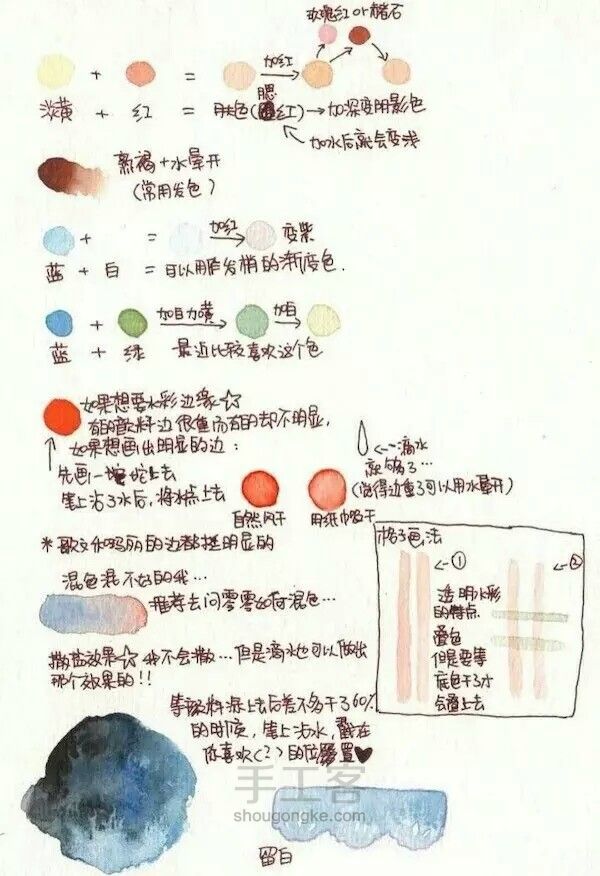 玫瑰红 or 赭石
+ = 加红
淡黄 + 红 = 肤色(腮红) → 加深变阴影色
加水后就会变浅
熟褐+水晕开
(常用发色)
+ = 加红 变紫
蓝 + 白 = 可以用作发梢的渐变色.
+ 加白加黄 加白
蓝 + 绿 最近比较喜欢这个色
如果想要水彩边缘☆
有的颜料边很重而有的却不明显,
如果想画出明显的边:
先画一坨上去
笔上沾了水后,将水点上去
←--滴水
就够了…
(觉得边重了可以用水晕开)
自然风干
用纸巾吸干
*歌文和吗丽的边都挺明显的
混色混不好的我…
推荐去问零零如何混色…
撒盐效果☆ 我不会撒…但是滴水也可以做出
那个效果的!!
格子画法
←①
←②
透明水彩
的特点
叠色
但是要等
底色干了才
能叠上去
等颜料涂上去后差不多干了60%
的时候,笔上沾水,戳在
你喜欢(?)的位置♥
手工客
shougongke.com
留白